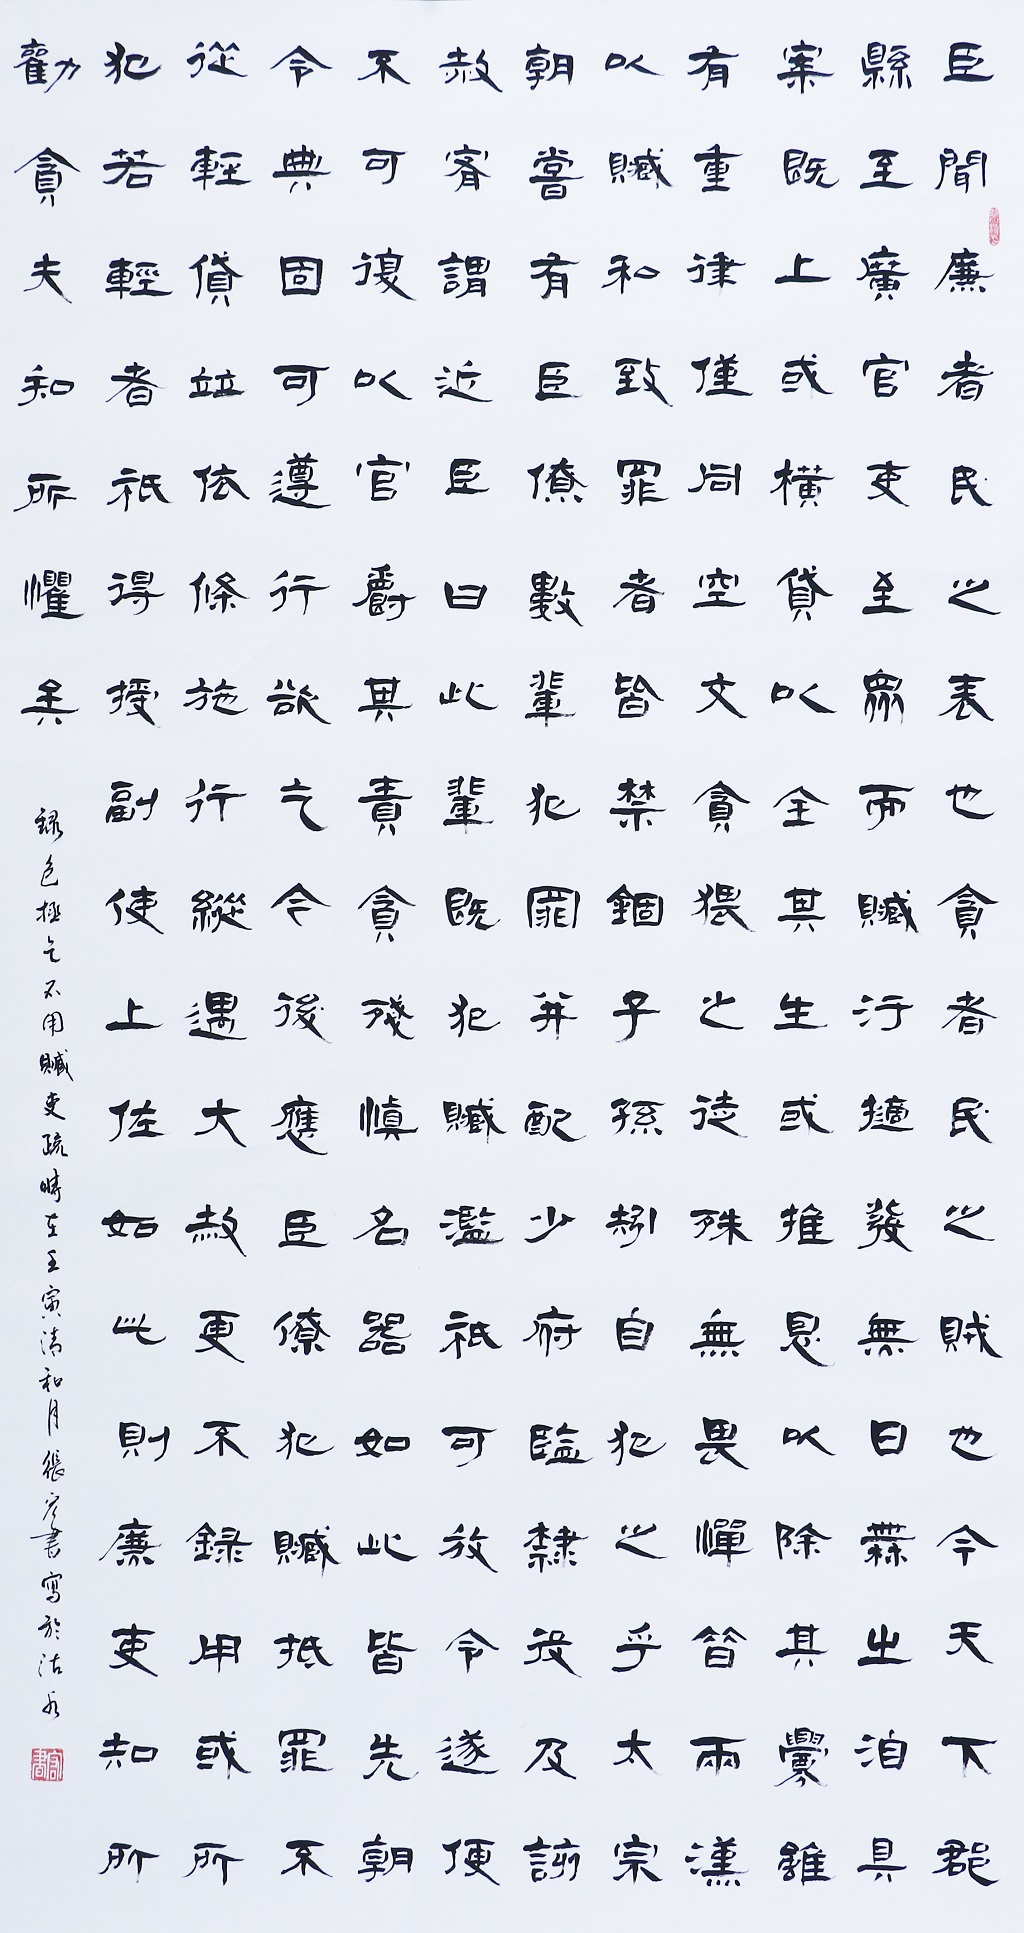 臣聞廉者民之表也貪者民之賊也今天下郡
縣至廣官吏至眾而贓污擿發無日無之洎具
案既上或橫貸以全其生或推恩以除其釁雖
有重律僅同空文貪猥之徒殊無畏憚昔兩漢
以贓和致罪者皆禁錮子孫矧自犯之乎太宗
朝嘗有臣僚數輩犯罪并配少府監隸役及該
赦宥謂近臣曰此輩既犯贓濫祇可放令遂便
不可復以官爵其責貪殘慎名器如此皆先朝
令典固可遵行欲乞今後應臣僚犯贓抵罪不
從輕貸並依條施行縱遇大赦更不錄用或所
犯若輕者祇得授副使上佐如此則廉吏知所
勸貪夫知所懼矣
錄包拯乞不用贓吏疏時在壬寅清和月張彥書寫於沽水